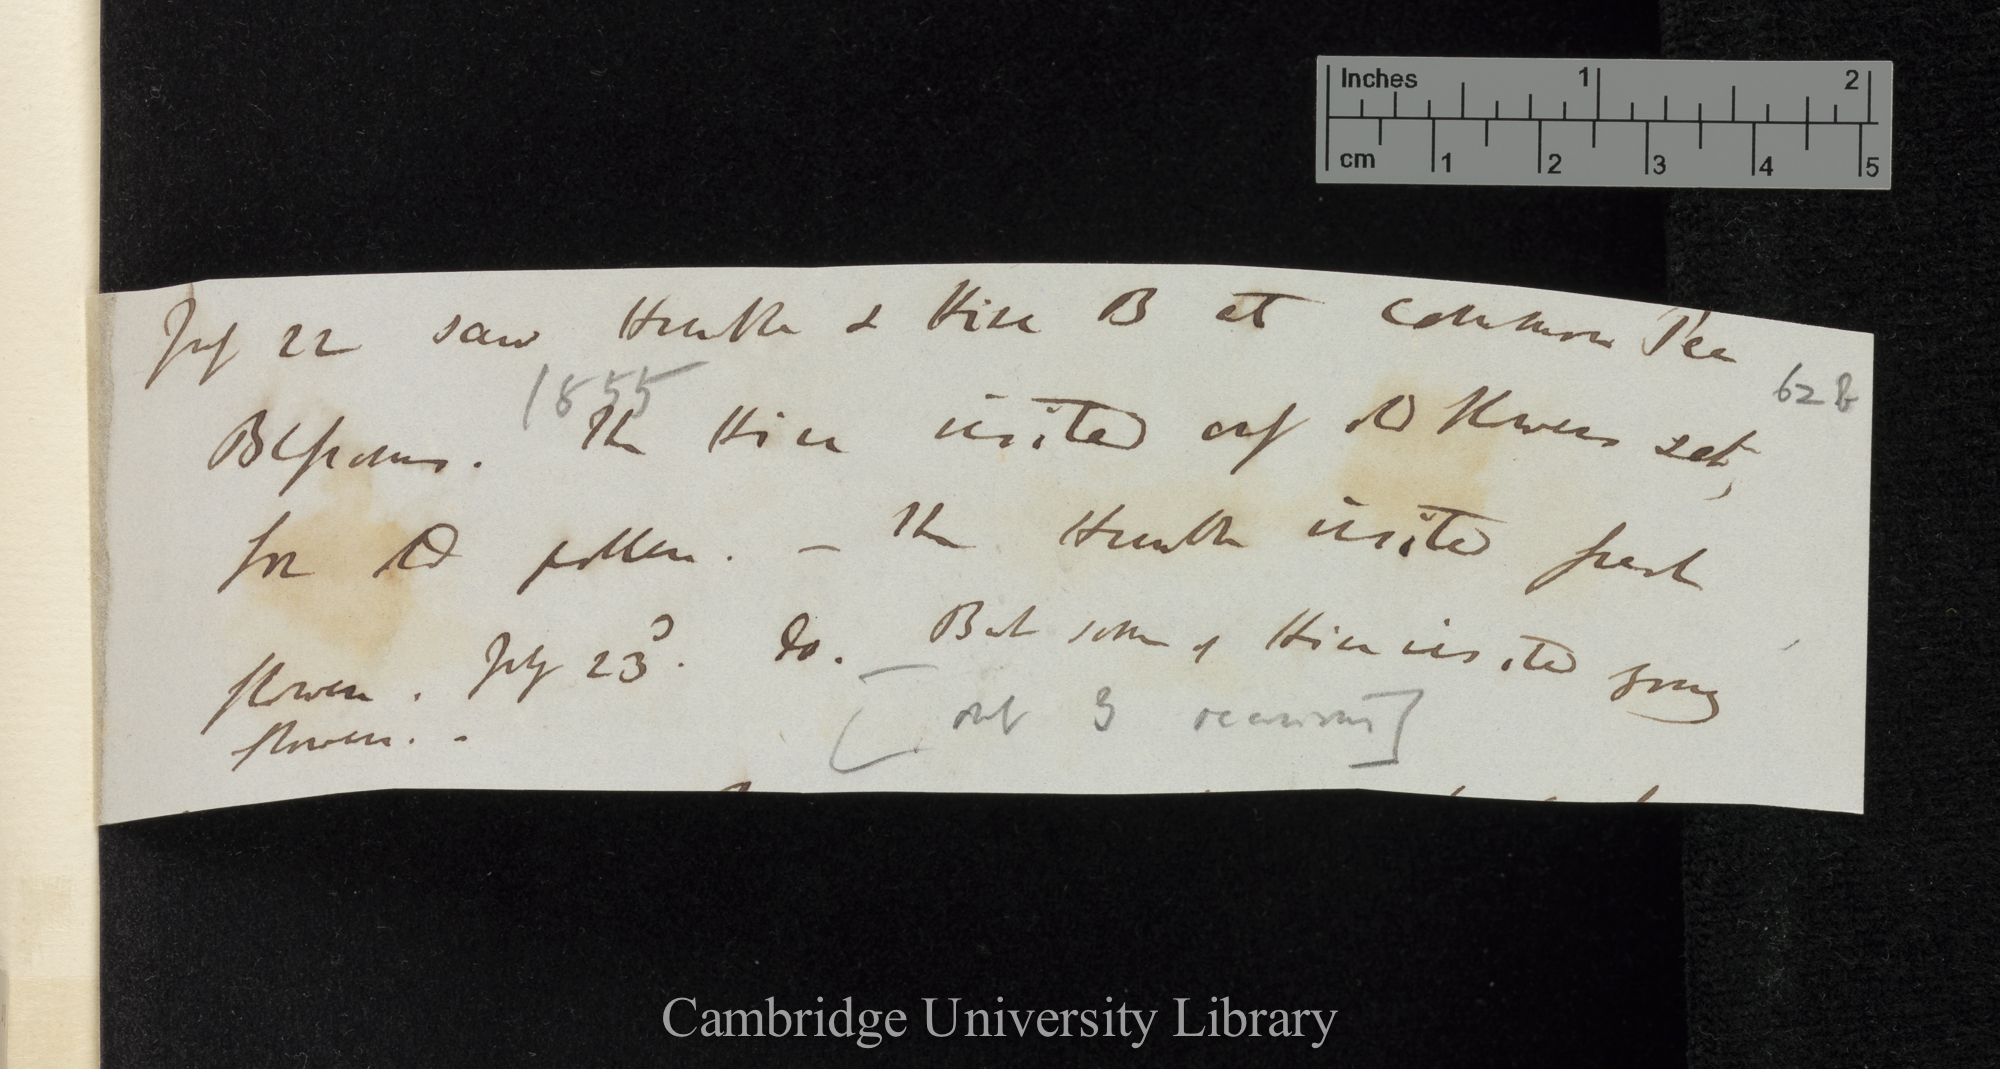 Inches 1 2
cm 1 2 3 4 5
July 22 saw Humble & Hive B at common Pea
1855
62 B
Blossoms. The Hive visited only old flowers set,
for old pollen. — The Humble visited fresh
flowers. July 23d. do. But some of Hive visited young
flowers. -
[ 3 occasions]
Cambridge University Library